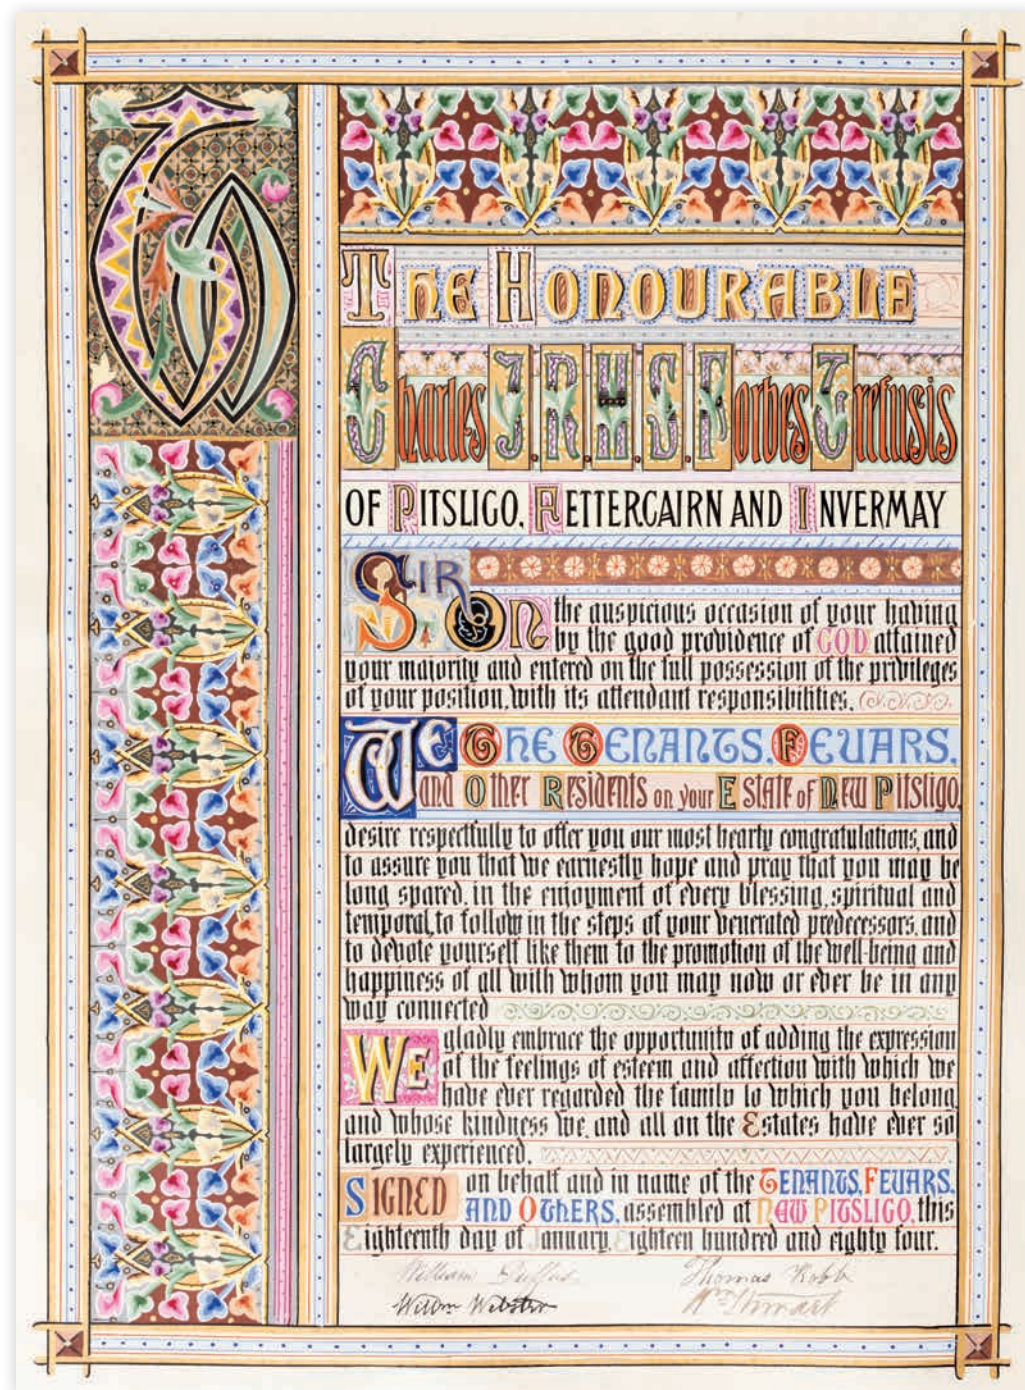 To
The Honourable
Charles J.R.H.S. Forbes Trefusis
OF PITSLIGO, FETTERCAIRN AND INVERMAY
SIR
On the auspicious occasion of your having
by the good providence of GOD attained
your majority and entered on the full possession of the privileges
of your position, with its attendant responsibilities.
WE THE TENANTS, FEUARS,
and Other Residents on your Estate of New Pitsligo,
desire respectfully to offer you our most hearty congratulations, and
to assure you that we earnestly hope and pray that you may be
long spared, in the enjoyment of every blessing, spiritual and
temporal, to follow in the steps of your venerated predecessors, and
to devote yourself like them to the promotion of the well-being and
happiness of all with whom you may now or ever be in any
way connected
We gladly embrace the opportunity of adding the expression
of the feelings of esteem and affection with which we
have ever regarded the family to which you belong,
and whose kindness we, and all on the Estates have ever so
largely experienced.
SIGNED on behalf and in name of the TENANTS, FEUARS,
AND OTHERS, assembled at NEW PITSLIGO, this
Eighteenth day of January, Eighteen hundred and eighty four.
William Duffus Thomas Robb
Willm Webster Wm Stewart